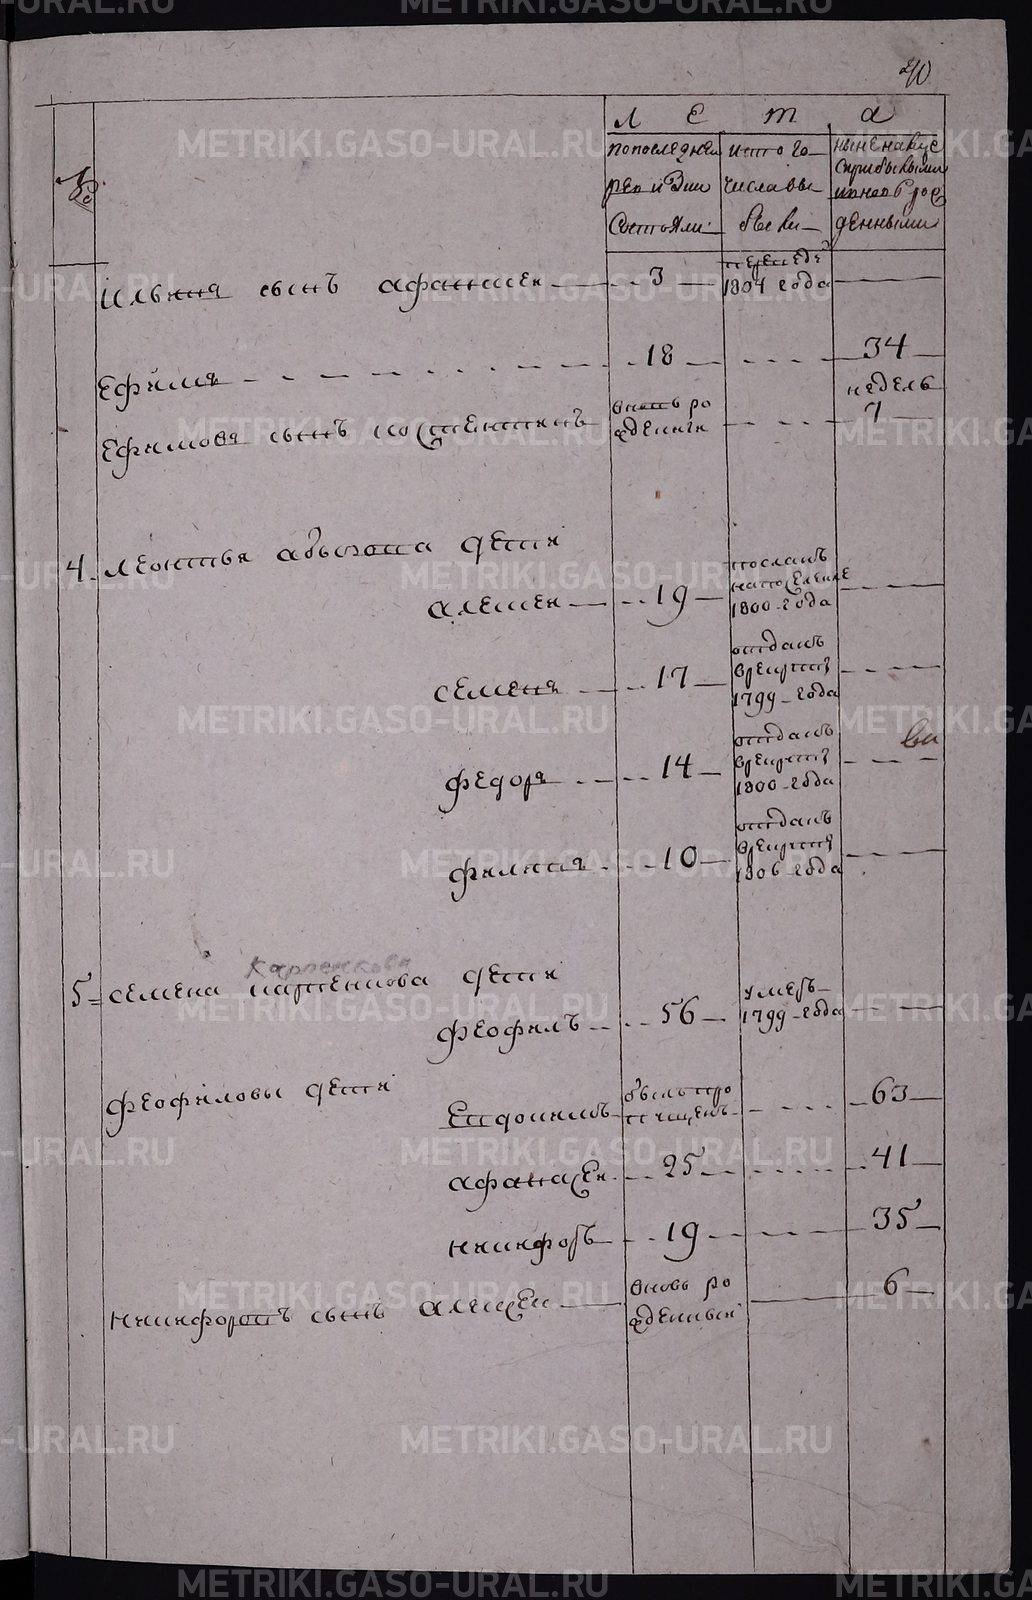 40
№
Л е т а
по последней ревизии состояли
из того числа выбыли
ныне на лицо с прибылыми и вновь рожденными
Ильиня сынъ афанасеи 3 1804 года
Ефима 18 34
Ефимова сынъ костентинъ вновь рожденги недель 7
4. леонтья дети
алексеи 19 посланъ на поселение 1800 года
семенъ 17 отданъ в рекруты 1799 года
федоръ 14 отданъ в рекруты 1800 года
филипъ 10 отданъ в рекруты 1806 года
Карпенкова
5 семена дети
феофилъ 56 умеръ 1799 года
феофиловы дети
Евдокимъ былъ пропущенъ 63
афанасеи 25 41
никифоръ 19 35
никифоровъ сынъ алексеи вновь рожденный 6
METRIKI.GASO-URAL.RU